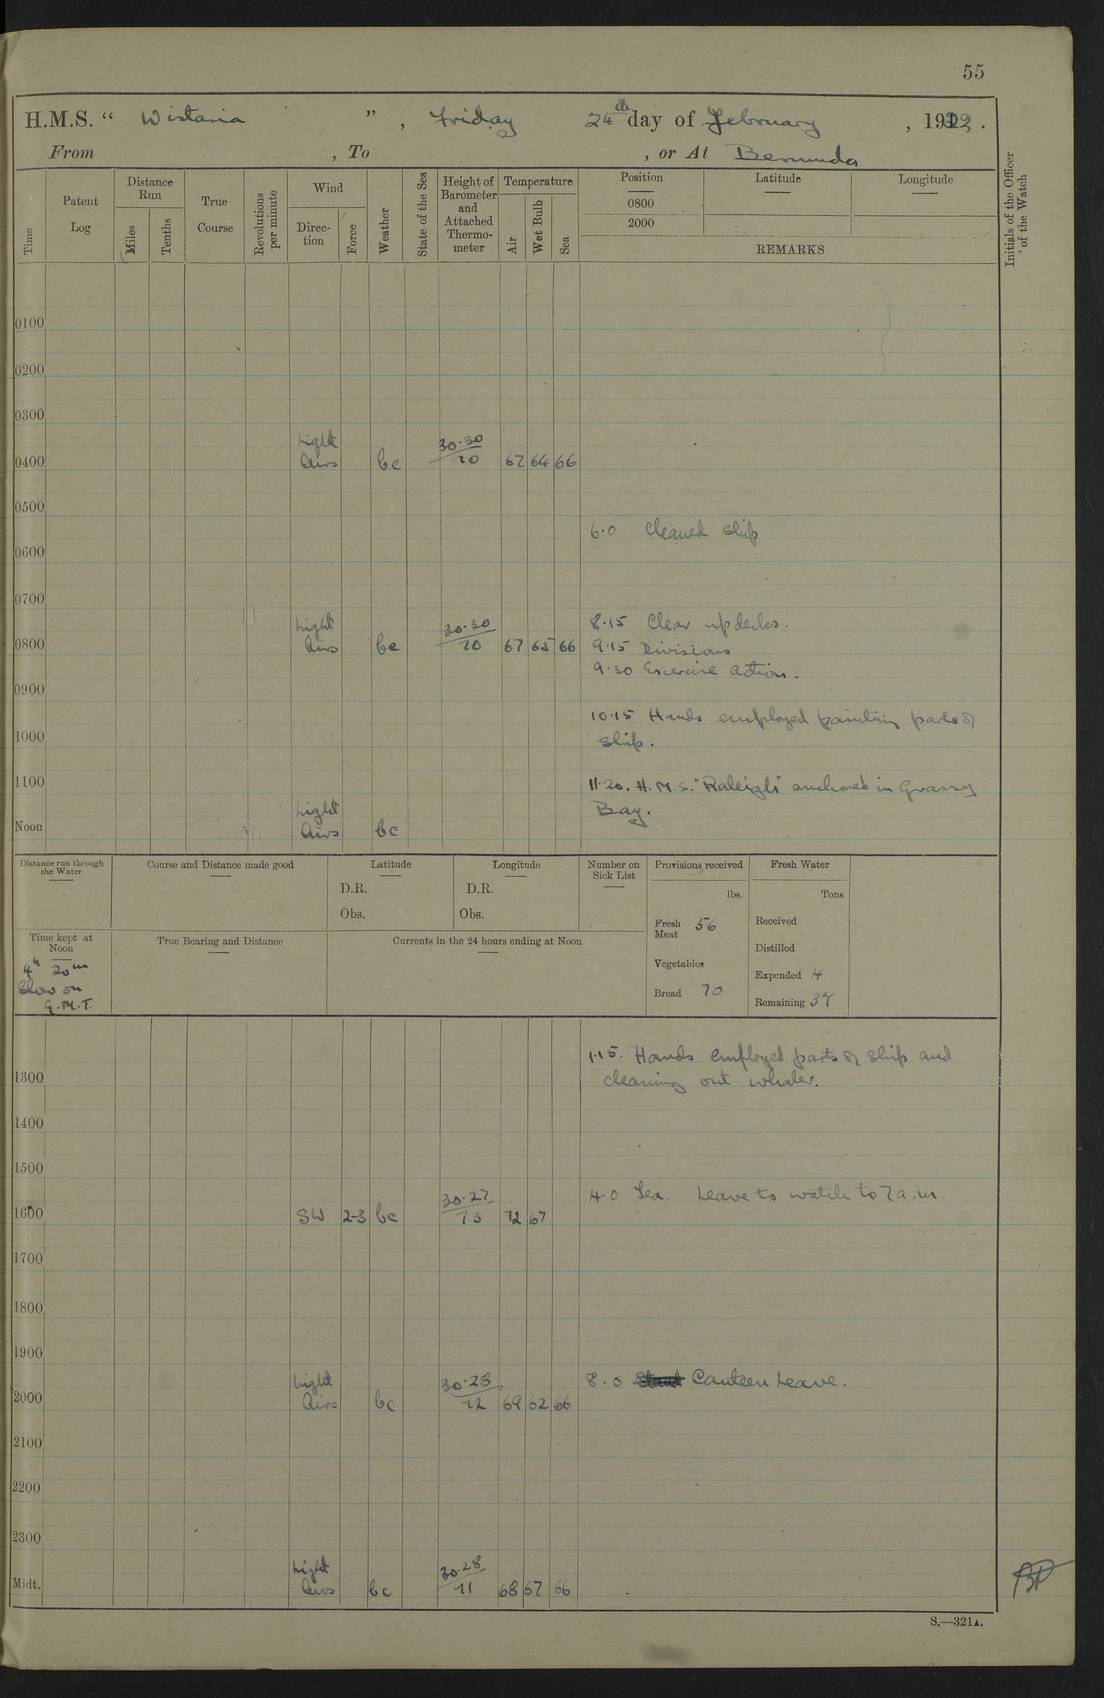 55
H.M.S. " Wistaria ", Friday 24th day of February, 1922.
From , To , or At Bermuda
Time
Patent Log
Distance Run
Miles
Tenths
True Course
Revolutions per minute
Wind
Direction
Force
Weather
State of the Sea
Height of Barometer and Attached Thermometer
Temperature
Air
Wet Bulb
Sea
Position
0800
2000
Latitude
Longitude
REMARKS
Initials of the Officer of the Watch
0100
0200
0300
Light 30.30
0400 Airs bc 70 67 64 66
0500
6.0 Cleaned ship
0600
0700
Light 30.30 8.15 Clear up decks.
0800 Airs bc 70 67 65 66 9.15 Divisions
9.30 Exercise Action.
0900
10.15 Hands employed painting parts of
1000 ship.
1100 11.20. H.M.S. "Raleigh" anchored in Grassy
Light Bay.
Noon Airs bc
Distance run through the Water
Course and Distance made good
Latitude
D.R.
Obs.
Longitude
D.R.
Obs.
Number on Sick List
Provisions received
lbs.
Fresh Meat 56
Vegetables
Bread 70
Fresh Water
Tons
Received
Distilled
Expended 4
Remaining 37
Time kept at Noon
4h 20m
Slow on
G.M.T.
True Bearing and Distance
Currents in the 24 hours ending at Noon
1.15. Hands employed parts of ship and
1300 cleaning out whaler.
1400
1500
30.27 4.0 Tea. Leave to watch to 7 a.m.
1600 SW 2-3 bc 73 72 67
1700
1800
1900
Light 30.28 8.0 Canteen Leave.
2000 Airs bc 72 69 62 66
2100
2200
2300
Light 30.28
Midt. Airs bc 71 68 67 66
S.—321A.